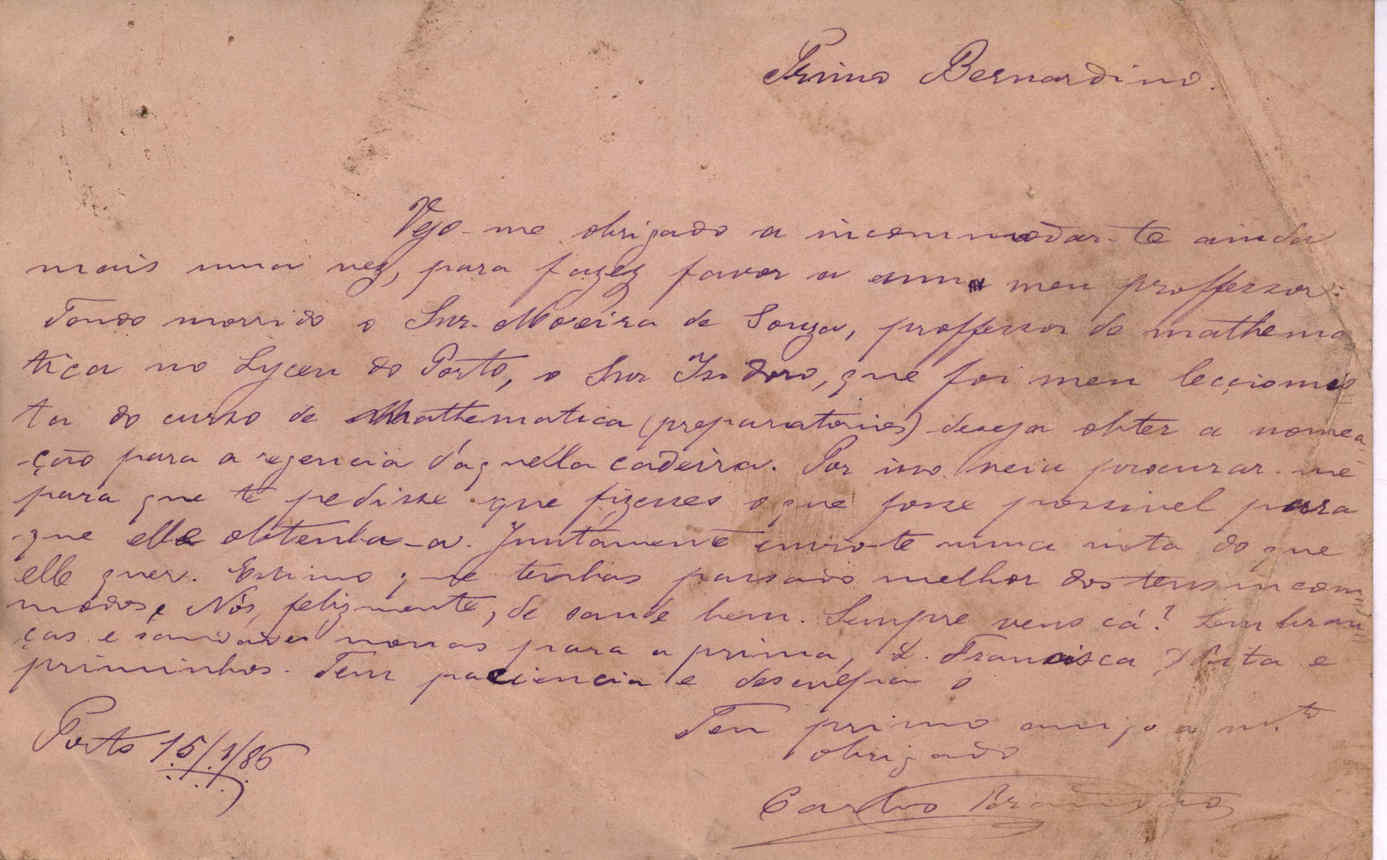 Primo Bernardino.
Vejo-me obrigado a incommodar-te ainda
mais uma vez, para fazer favor a um meu proffessor.
Tendo morrido o Snr. Moreira de Souza, proffessor de mathema
tica no Lyceu do Porto, o Snr Isidoro, que foi meu leccionis
ta do curso de Mathematica (preparatorios) deseja obter a nomea
-ção para a regencia d'aquella cadeira. Por isso veiu procurar-me
para que te pedisse que fizesses o que fosse possivel para
que elle obtenha-a. Juntamente envio-te uma nota do que
elle quer. Estimo que tenhas passado melhor dos teus incom
modos, Nós, felizmente, de saude bem. Sempre vens cá? Lembran
ças e saudades nossas para a prima, D. Francisca e
priminhos. Tem paciencia e desculpa o
Teu primo amigo a m.to
obrigado
Porto 15/1/86
Castro